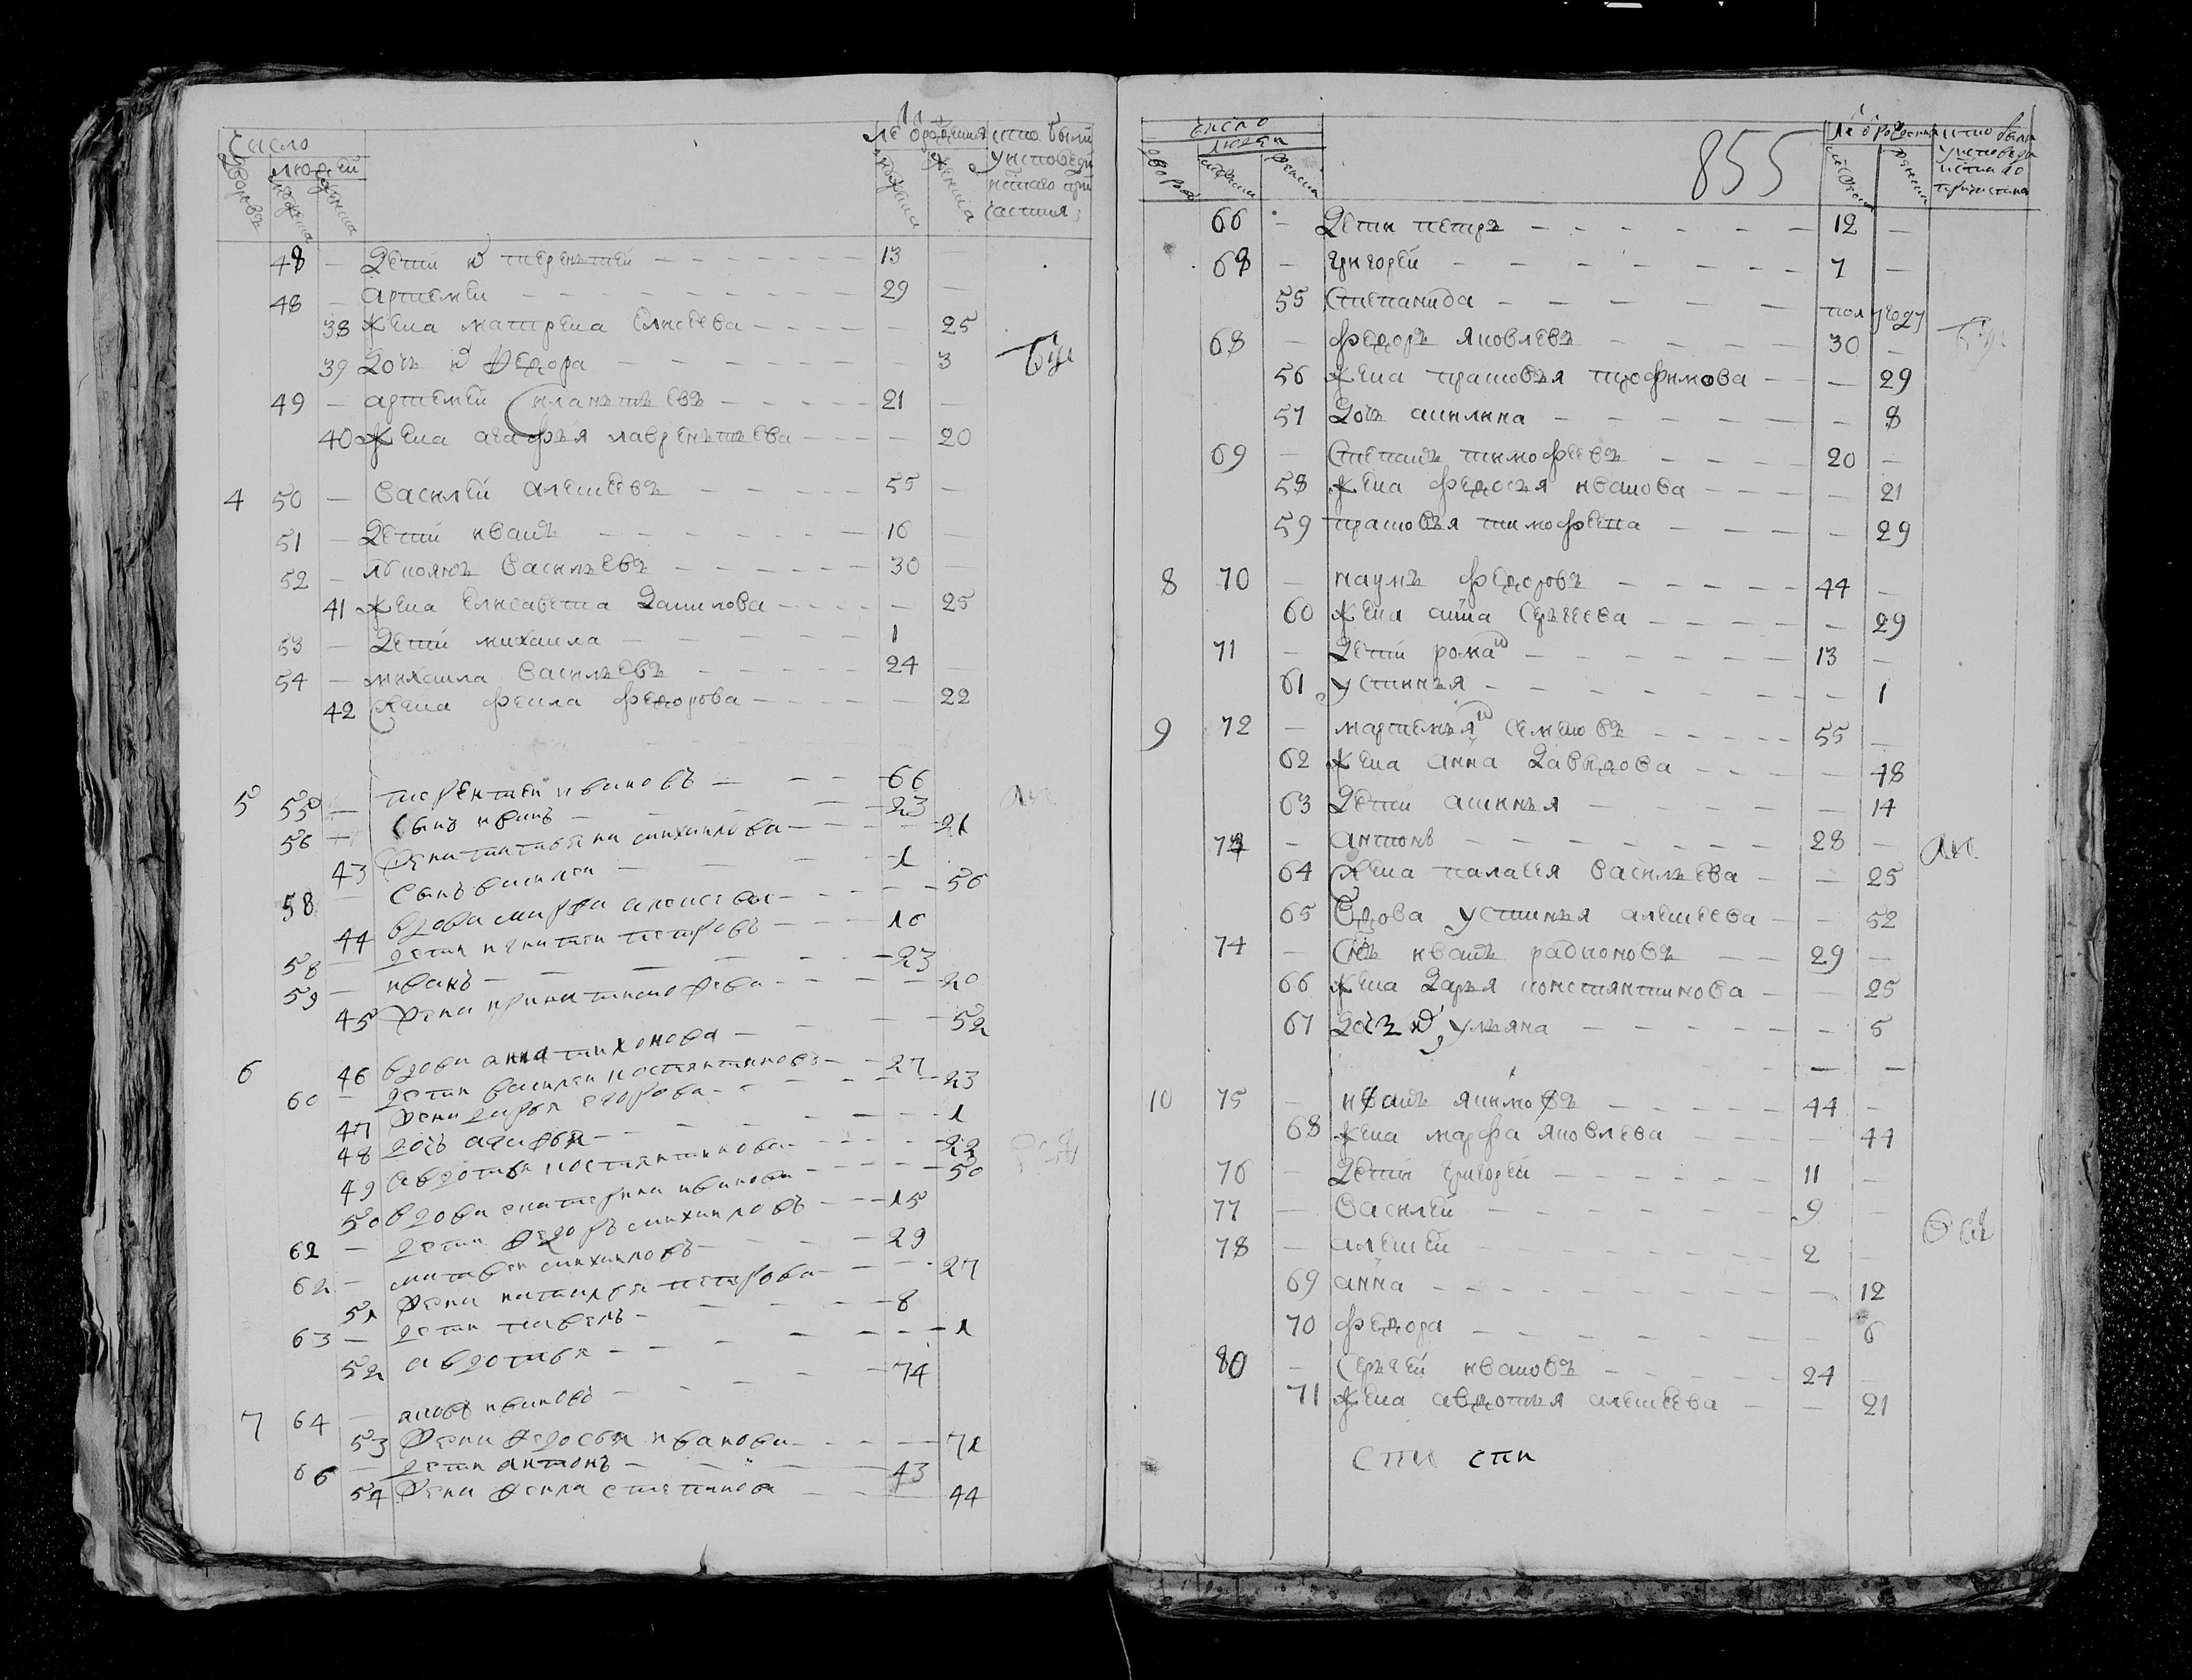 Число
людей
дворовъ
мужеска
женска
лѣ отрожденія
мужеска
женска
кто были
у исповеди
и святаго при
частия
48 — Дети ĭ терентей — 13 —
48 — артемеи — 29 —
38 жена матрена Елисеева — — 25
39 Дочь ĭ Федора — — 3
49 — артемей — 21 —
40 жена агафья лаврентьева — — 20
4 50 — Василей алексеевъ — 55 —
51 — Дети иванъ — 16 —
52 — лукоянъ Васильевъ — 30
41 жена Елисавета Данилова — — 25
53 — Дети михаила — 1
54 — михаила Васильевъ — 24 —
42 жена фекла федорова — — 22
5 55 — терентеи ивановъ — 66
56 — Сынъ иванъ — 23
43 жена татьяна михаилова — 21
58 — Сынъ василеи — 1
44 вдова марфа — 56
58 — дети никита петровъ — 16
59 — иванъ — 23
45 жена ирина тимофеева — 20
6 46 вдова анна тихонова — 52
60 — дети василеи костянтиновъ — 27
47 жена дарья егорова — 23
48 дочь агафья — 1
49 авдотья костянтинова — 22
50 вдова екатерина иванова — 50
62 — дети федоръ михаиловъ — 15
62 — матвеи михаиловъ — 29
51 жена наталья петрова — 27
63 — дети павелъ — 8
52 авдотья — 1
7 64 — яковъ ивановъ — 74
53 жена федосья иванова — 71
66 — дети антонъ — 43
54 жена фекла степанова — 44
число
людеи
дворовъ
мужеска
женска
855
лѣ отрождения
мужеска
женска
кто были
у исповеди
и святаго
причастия
66 — Дети петръ — 12 —
68 — григорей — 7 —
55 Степанида — полугоду
68 — федоръ яковлевъ — 30 —
56 жена прасковья трофимова — — 29
57 Дочь акилина — — 8
69 — Степанъ тимофеевъ — 20 —
58 жена федосья иванова — — 21
59 прасковья тимофеева — — 29
8 70 — наумъ федоровъ — 44 —
60 жена анна Сергеева — — 29
71 — Дети романъ — 13 —
61 устинья — — 1
9 72 — мартемьянъ Семеновъ — 55 —
62 жена анна Давыдова — — 48
63 Дети аксинья — — 14
73 — антонъ — 28 —
64 жена палагея Васильева — — 25
65 Вдова устинья алексеева — — 52
74 — Снъ иванъ радионовъ — 29 —
66 жена Дарья константинова — — 25
67 Дочь ĭ ульяна — — 5
10 75 — иванъ якимовъ — 44 —
68 жена марфа яковлева — — 44
76 — Дети григорей — 11 —
77 — Василей — 9 —
78 — алексей — 2 —
69 анна — — 12
70 федора — — 6
80 — Сергей ивановъ — 24 —
71 жена авдотья алексеева — — 21